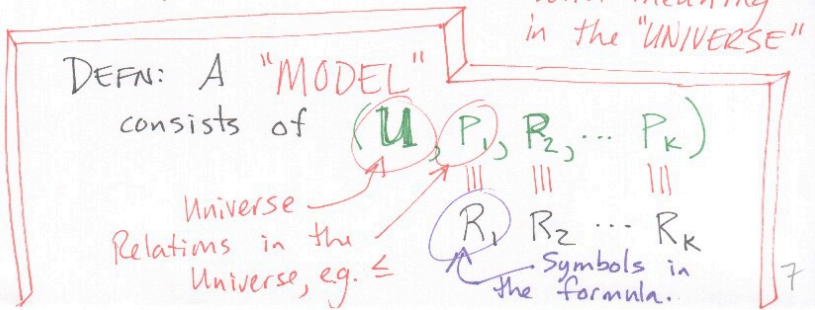 in the "UNIVERSE"
DEFN: A "MODEL"
consists of (U, P₁, R₂, ... Pₖ)
||| ||| |||
Universe R₁ R₂ ... Rₖ
Relations in the
Universe, e.g. ≤
Symbols in
the formula.
7